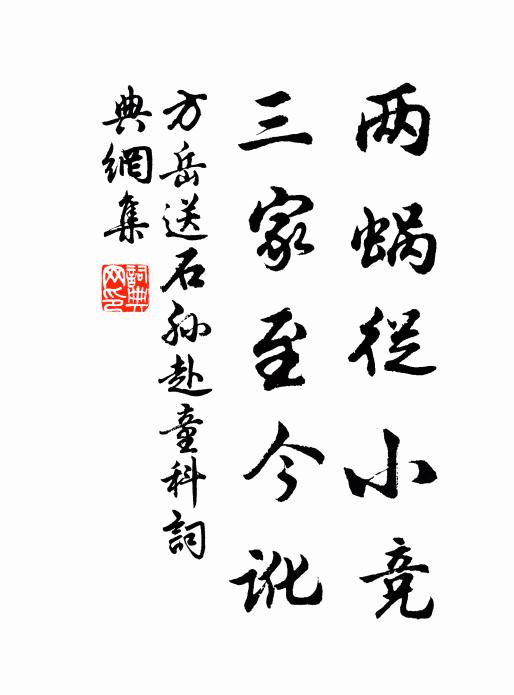 两蜗从小竞
三家至今讹
方岳送石孙赴童科詞
典網集
詞典網印